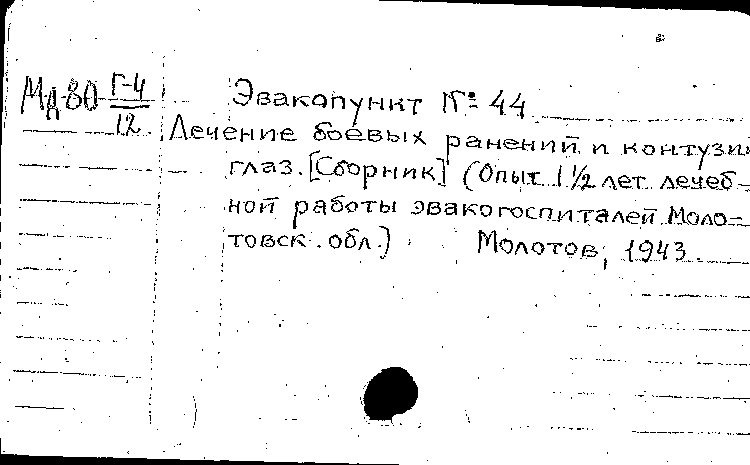 Мд 80 Г-4/12
Эвакопункт № 44
Лечение боевых ранений и контузий
глаз. [Сборник] (Опыт 1 1/2 лет лечеб-
ной работы эвакогоспиталей Моло-
товск. обл.) Молотов, 1943.